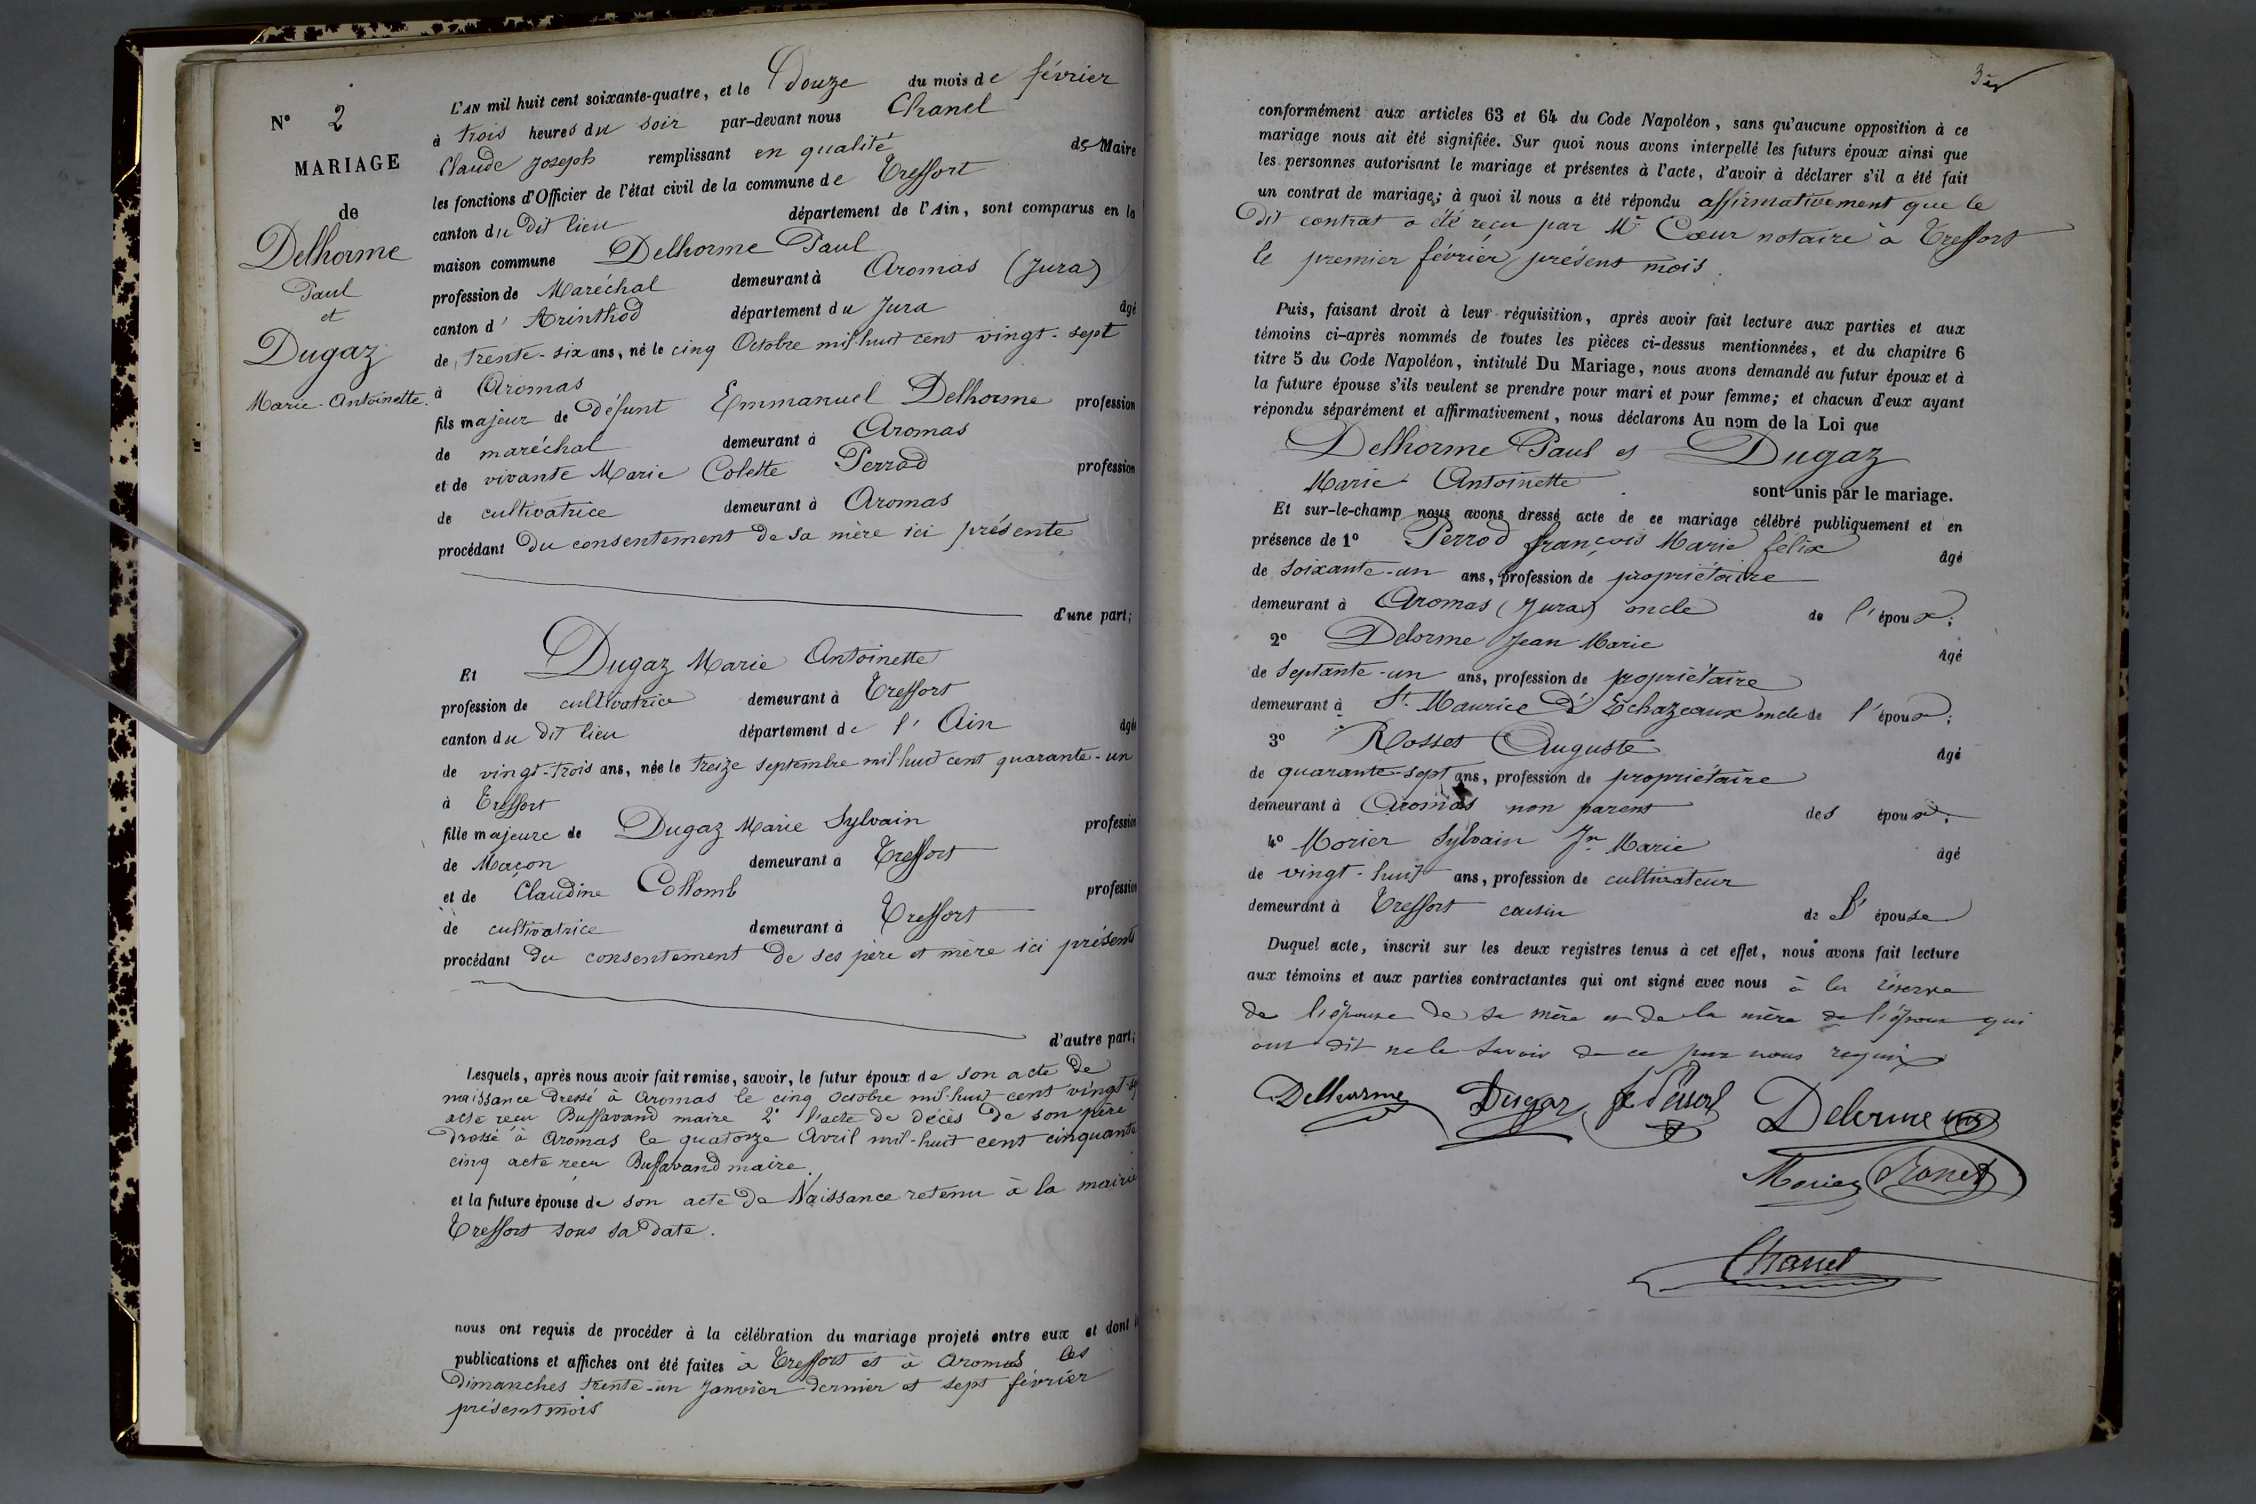 N° 2
MARIAGE
de
Delhorme
Paul
et
Dugaz
Marie-Antoinette.
L'AN mil huit cent soixante-quatre, et le Douze du mois de février
à trois heures du soir par-devant nous Chanel
Claude Joseph remplissant en qualité de Maire
les fonctions d'Officier de l'état civil de la commune de Treffort
canton du dit lieu département de l'Ain, sont comparus en la
maison commune Delhorme Paul
profession de Maréchal demeurant à Aromas (Jura)
canton d' Arinthod département du Jura âgé
de trente-six ans, né le cinq Octobre mil-huit cent vingt-sept
à Aromas
fils majeur de Défunt Emmanuel Delhorme profession
de maréchal demeurant à Aromas
et de vivante Marie Colette Perrod profession
de cultivatrice demeurant à Aromas
procédant du consentement de sa mère ici présente
d'une part;
Et Dugaz Marie Antoinette
profession de cultivatrice demeurant à Treffort
canton du dit lieu département de l' Ain âgée
de vingt-trois ans, née le treize septembre mil huit cent quarante-un
à Treffort
fille majeure de Dugaz Marie Sylvain profession
de Maçon demeurant à Treffort
et de Claudine Collomb profession
de cultivatrice demeurant à Treffort
procédant du consentement de ses père et mère ici présents
d'autre part;
Lesquels, après nous avoir fait remise, savoir, le futur époux de son acte de
naissance dressé à Aromas le cinq octobre mil-huit cent vingt-sept
acte reçu Buffavand maire 2° l'acte de décès de son père
dressé à Aromas le quatorze Avril mil-huit cent cinquante
cinq acte reçu Buffavand maire.
et la future épouse de son acte de Naissance retenu à la mairie
Treffort sous sa date.
nous ont requis de procéder à la célébration du mariage projeté entre eux et dont
publications et affiches ont été faites à Treffort et à Aromas les
dimanches trente-un Janvier dernier et sept février
présent mois
conformément aux articles 63 et 64 du Code Napoléon, sans qu'aucune opposition à ce
mariage nous ait été signifiée. Sur quoi nous avons interpellé les futurs époux ainsi que
les personnes autorisant le mariage et présentes à l'acte, d'avoir à déclarer s'il a été fait
un contrat de mariage; à quoi il nous a été répondu affirmativement que le
dit contrat a été reçu par Me Cœur notaire à Treffort
le premier février présent mois.
Puis, faisant droit à leur réquisition, après avoir fait lecture aux parties et aux
témoins ci-après nommés de toutes les pièces ci-dessus mentionnées, et du chapitre 6
titre 5 du Code Napoléon, intitulé Du Mariage, nous avons demandé au futur époux et à
la future épouse s'ils veulent se prendre pour mari et pour femme; et chacun d'eux ayant
répondu séparément et affirmativement, nous déclarons Au nom de la Loi que
Delhorme Paul et Dugaz
Marie Antoinette sont unis par le mariage.
Et sur-le-champ nous avons dressé acte de ce mariage célébré publiquement et en
présence de 1° Perrod françois Marie felix âgé
de soixante-un ans, profession de propriétaire
demeurant à Aromas (Jura) oncle de l'époux;
2° Delorme Jean Marie âgé
de septante-un ans, profession de propriétaire
demeurant à St Maurice d'Echazeaux oncle de l'époux;
3° Rosset Auguste âgé
de quarante-sept ans, profession de propriétaire
demeurant à Aromas non parent des époux;
4° Morier Sylvain Jn Marie âgé
de vingt-huit ans, profession de cultivateur
demeurant à Treffort cousin de l'épouse
Duquel acte, inscrit sur les deux registres tenus à cet effet, nous avons fait lecture
aux témoins et aux parties contractantes qui ont signé avec nous à la réserve
de l'épouse de sa mère et de la mère de l'époux qui
ont dit ne le savoir de ce par nous requis
Delhorme Dugaz Perrod Delorme
Morier Rosset
Chanel